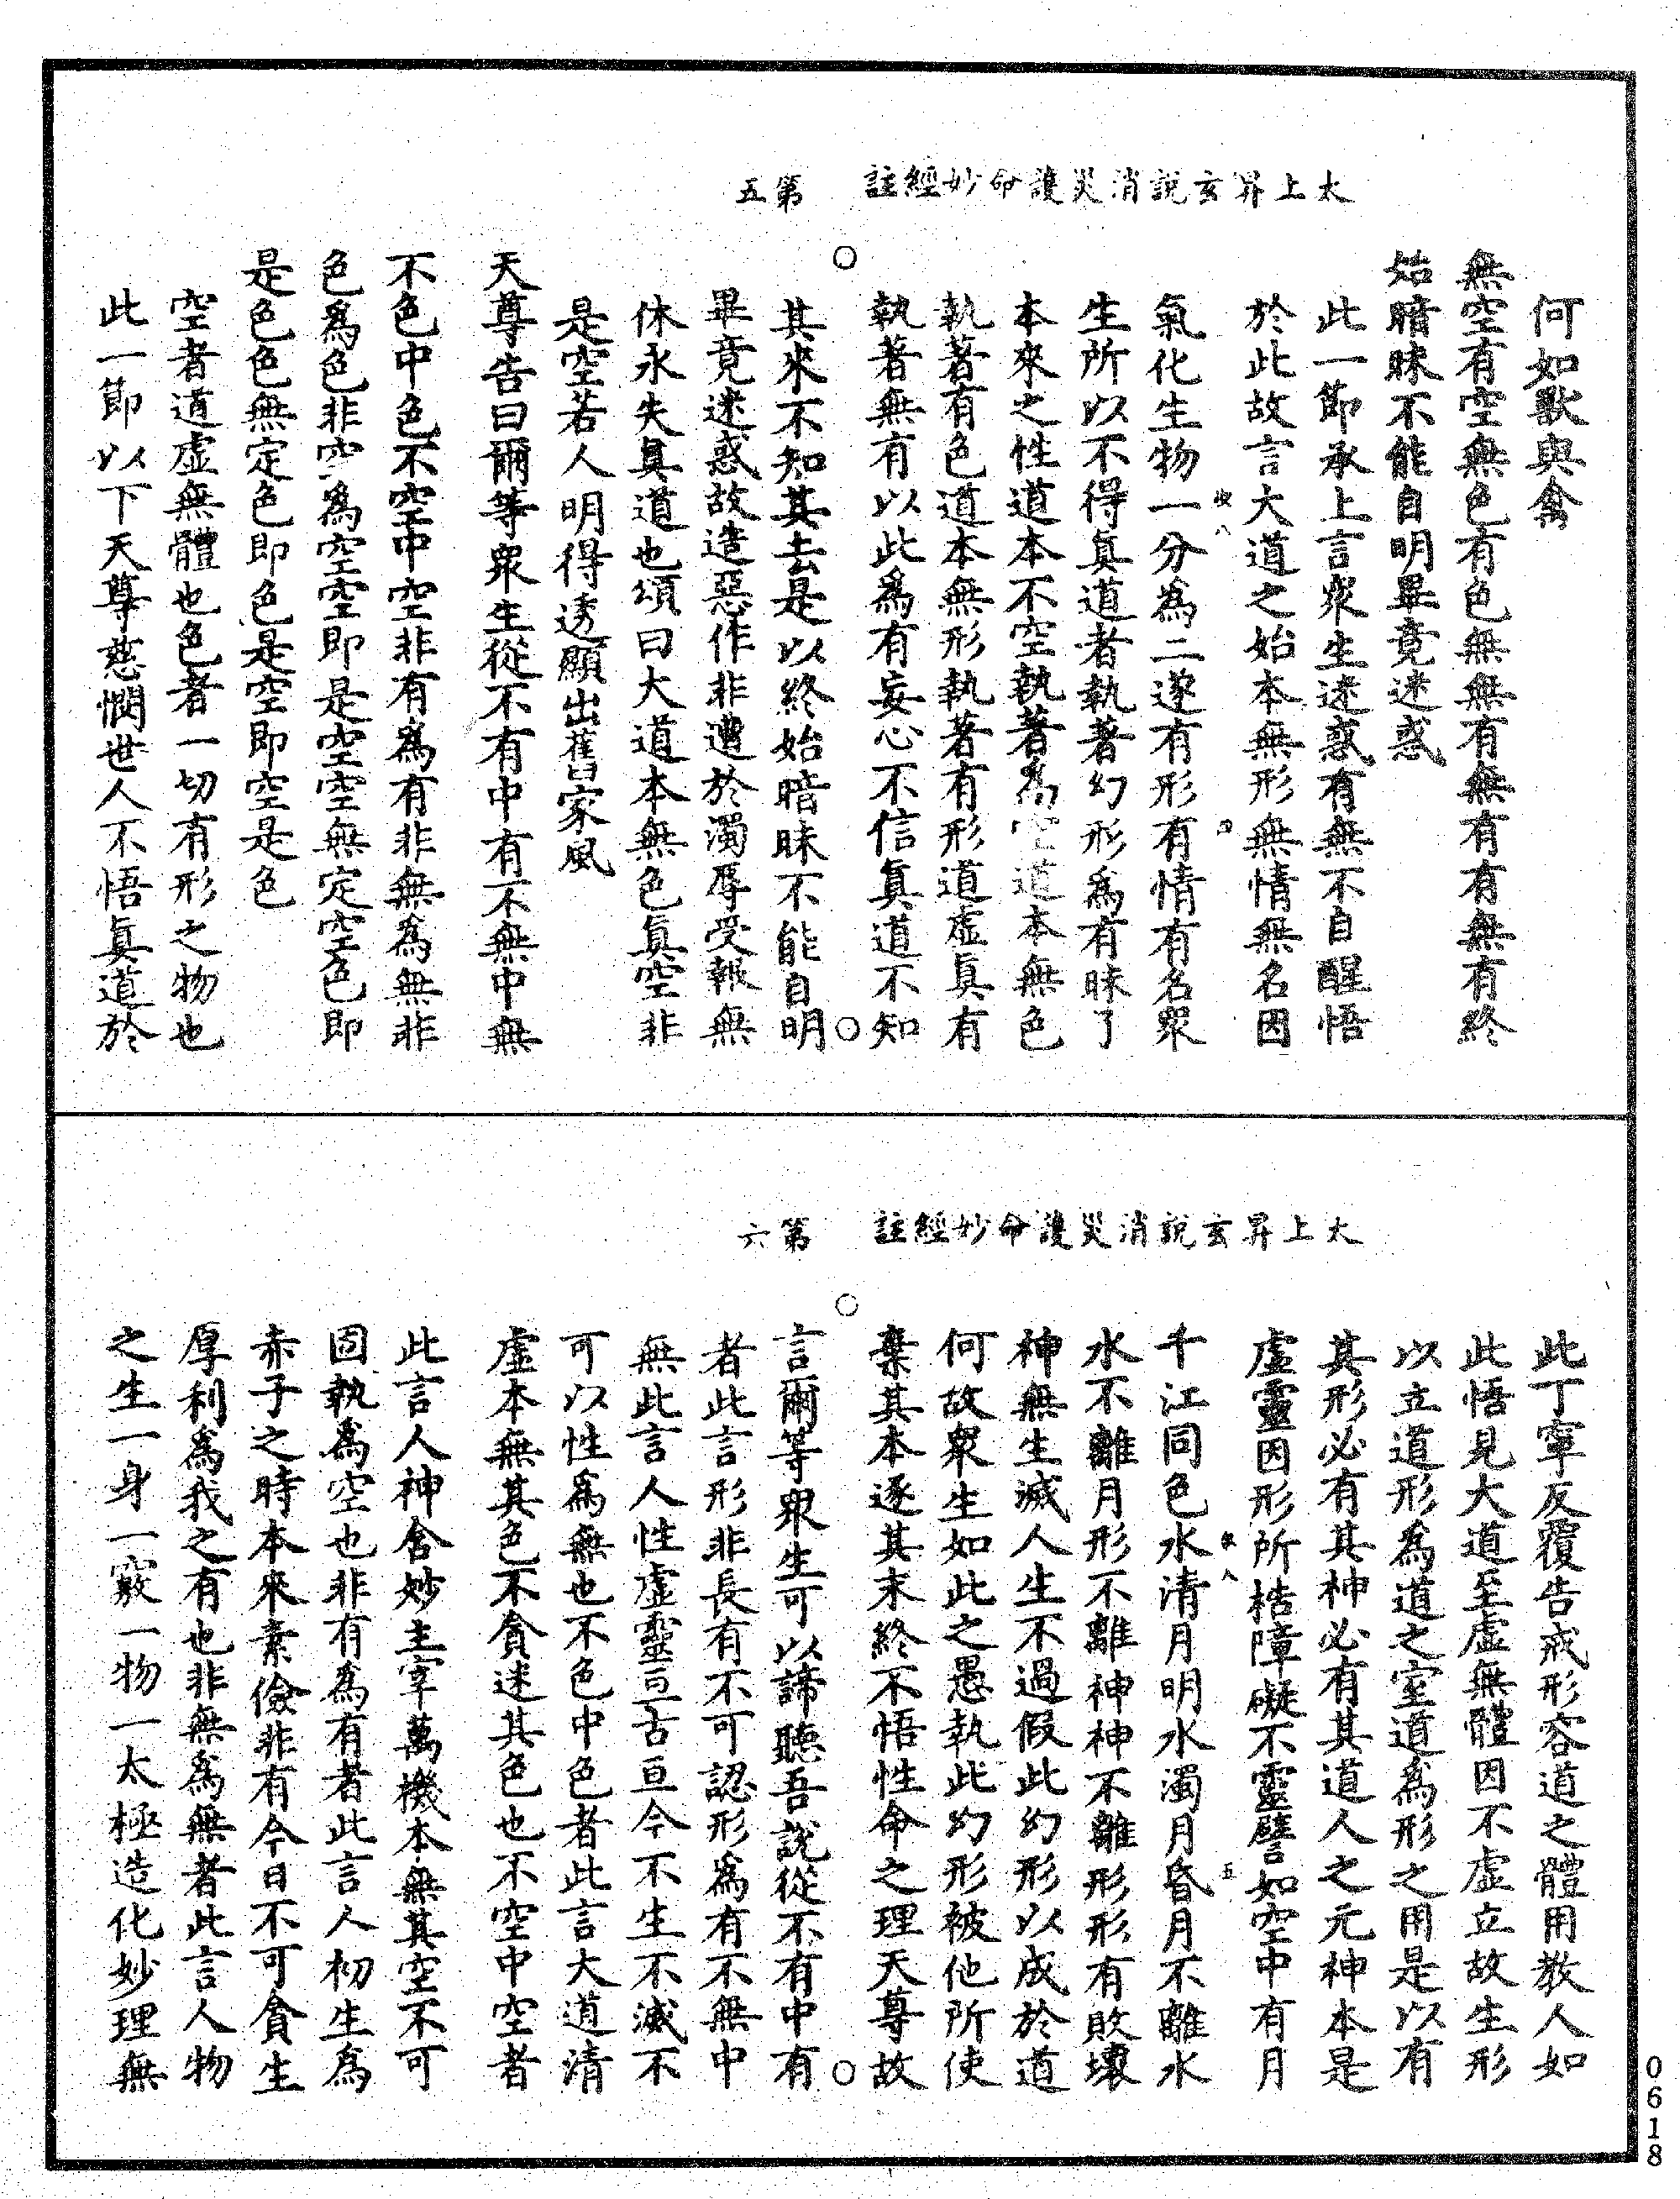 太上昇玄說消災護命妙經註　第五
何如獸與禽
無空有空無色有色無無有無有有無有終
始暗昧不能自明畢竟迷惑
此一節承上言眾生迷惑有無不自醒悟
於此故言大道之始本無形無情無名因
氣化生物一分為二遂有形有情有名眾
生所以不得眞道者執著幻形爲有昧了
本來之性道本不空執著爲空道本無色
執著有色道本無形執著有形道虛眞有
執著無有以此爲有妄心不信眞道不知
其來不知其去是以終始暗昧不能自明
畢竟迷惑故造惡作非遭於濁辱受報無
休永失眞道也頌曰大道本無色眞空非
是空若人明得透顯出舊家風
天尊告曰爾等眾生從不有中有不無中無
不色中色不空中空非有爲有非無爲無非
色爲色非空爲空空即是空空無定空色即
是色色無定色即色是空即空是色
空者道虛無體也色者一切有形之物也
此一節以下天尊慈憫世人不悟眞道於
太上昇玄說消災護命妙經註　第六
此丁寧反覆告戒形容道之體用教人如
此悟見大道至虛無體因不虛立故生形
以立道形為道之室道爲形之用是以有
其形必有其神必有其道人之元神本是
虛靈因形所梏障礙不靈譬如空中有月
千江同色水清月明水濁月昏月不離水
水不離月形不離神神不離形形有敗壞
神無生滅人生不過假此幻形以成於道
何故眾生如此之愚執此幻形被他所使
棄其本逐其末終不悟性命之理天尊故
言爾等眾生可以諦聽吾說從不有中有
者此言形非長有不可認形爲有不無中
無此言人性虛靈亘古亘今不生不滅不
可以性爲無也不色中色者此言大道清
虛本無其色不貪迷其色也不空中空者
此言人神含妙主宰萬機本無其空不可
固執爲空也非有爲有者此言人初生爲
赤子之時本來素儉非有今日不可貪生
厚利爲我之有也非無爲無者此言人物
之生一身一竅一物一太極造化妙理無
0618